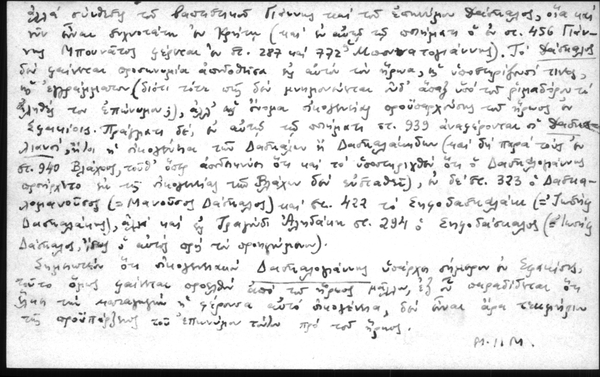 ἀλλὰ σύνθεσις τοῦ βαπτιστικοῦ Γιάννης καὶ τοῦ ἐπωνύμου Δάσκαλος, οἷα καὶ
νῦν εἶναι συχνοτάτη ἐν Κρήτῃ (καὶ ἐν αὐτῷ τῷ ποιήματι ὁ ἐν στ. 456 Γιάν-
νης Μπουνᾶτος φέρεται ἐν στ. 287 καὶ 772 Μπονατογιάννης). Τὸ Δάσκαλος
δὲν φαίνεται προσωνυμία ἀποδοθεῖσα εἰς αὐτὸν τὸν ἥρωα, ὡς ὑποστηρίζουσί τινες,
ὡς ἐγγράμματον (διότι τότε πῶς δὲν μνημονεύεται οὐδ' ἅπαξ ὑπὸ τοῦ ριμαδόρου τὸ
ἀληθές του ἐπώνυμον;), ἀλλ' ὡς ὄνομα οἰκογενείας προϋπαρχούσης τοῦ ἥρωος ἐν
Σφακίοις. Πράγματι δέ, ἐν αὐτῷ τῷ ποιήματι στ. 939 ἀναφέρονται οἱ Δασκα-
λιανοί, ἤτοι ἡ οἰκογένεια τῶν Δασκάλων ἢ Δασκαλάκηδων (καὶ δὴ παρὰ τοὺς ἐν
στ. 940 Βλάχους, τοῦθ' ὅπερ ἀποδεικνύει ὅτι καὶ τὸ ὑποστηριχθὲν ὅτι ὁ Δασκαλογιάννης
προήρχετο ἐκ τῆς οἰκογενείας τῶν Βλάχων δὲν εὐσταθεῖ), ἐν δὲ στ. 323 ὁ Δασκα-
λομανοῦσος (= Μανοῦσος Δάσκαλος) καὶ στ. 422 τὸ Σηφοδασκαλάκι (= Ἰωσὴφ
Δασκαλάκης), ἀλλὰ καὶ εἰς Τραγούδι Ἀληδάκη στ. 294 ὁ Σηφοδάσκαλος (= Ἰωσὴφ
Δάσκαλος, ἴσως ὁ αὐτὸς πρὸς τὸν προηγούμενον).
Σημειωτέον ὅτι οἰκογενειακὸν Δασκαλογιάννης ὑπάρχει σήμερον ἐν Σφακίοις,
τοῦτο ὅμως φαίνεται προελθὸν ἀπὸ τοῦ ἥρωος μᾶλλον, ἐξ οὗ παραδίδεται ὅτι
ἕλκει τὴν καταγωγὴν ἡ φέρουσα αὐτὸ οἰκογένεια, δὲν εἶναι ἄρα τεκμήριον
τῆς προϋπάρξεως τοῦ ἐπωνύμου τούτου πρὸ τοῦ ἥρωος.
Μ.Ι.Μ.